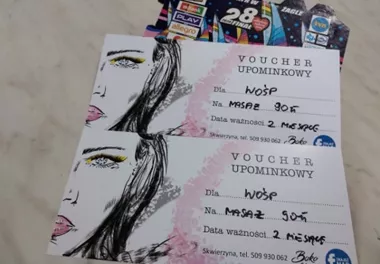 PLAY
allegro
28
VOUCHER
UPOMINKOWY
Dla WOŚP
Na MASAŻ 90zł
Data ważności 2 MIESIĄCE
Skwierzyna, tel. 509 930 062
VOUCHER
UPOMINKOWY
Dla WOŚP
Na MASAŻ 90zł
Data ważności 2 MIESIĄCE
Skwierzyna, tel. 509 930 062